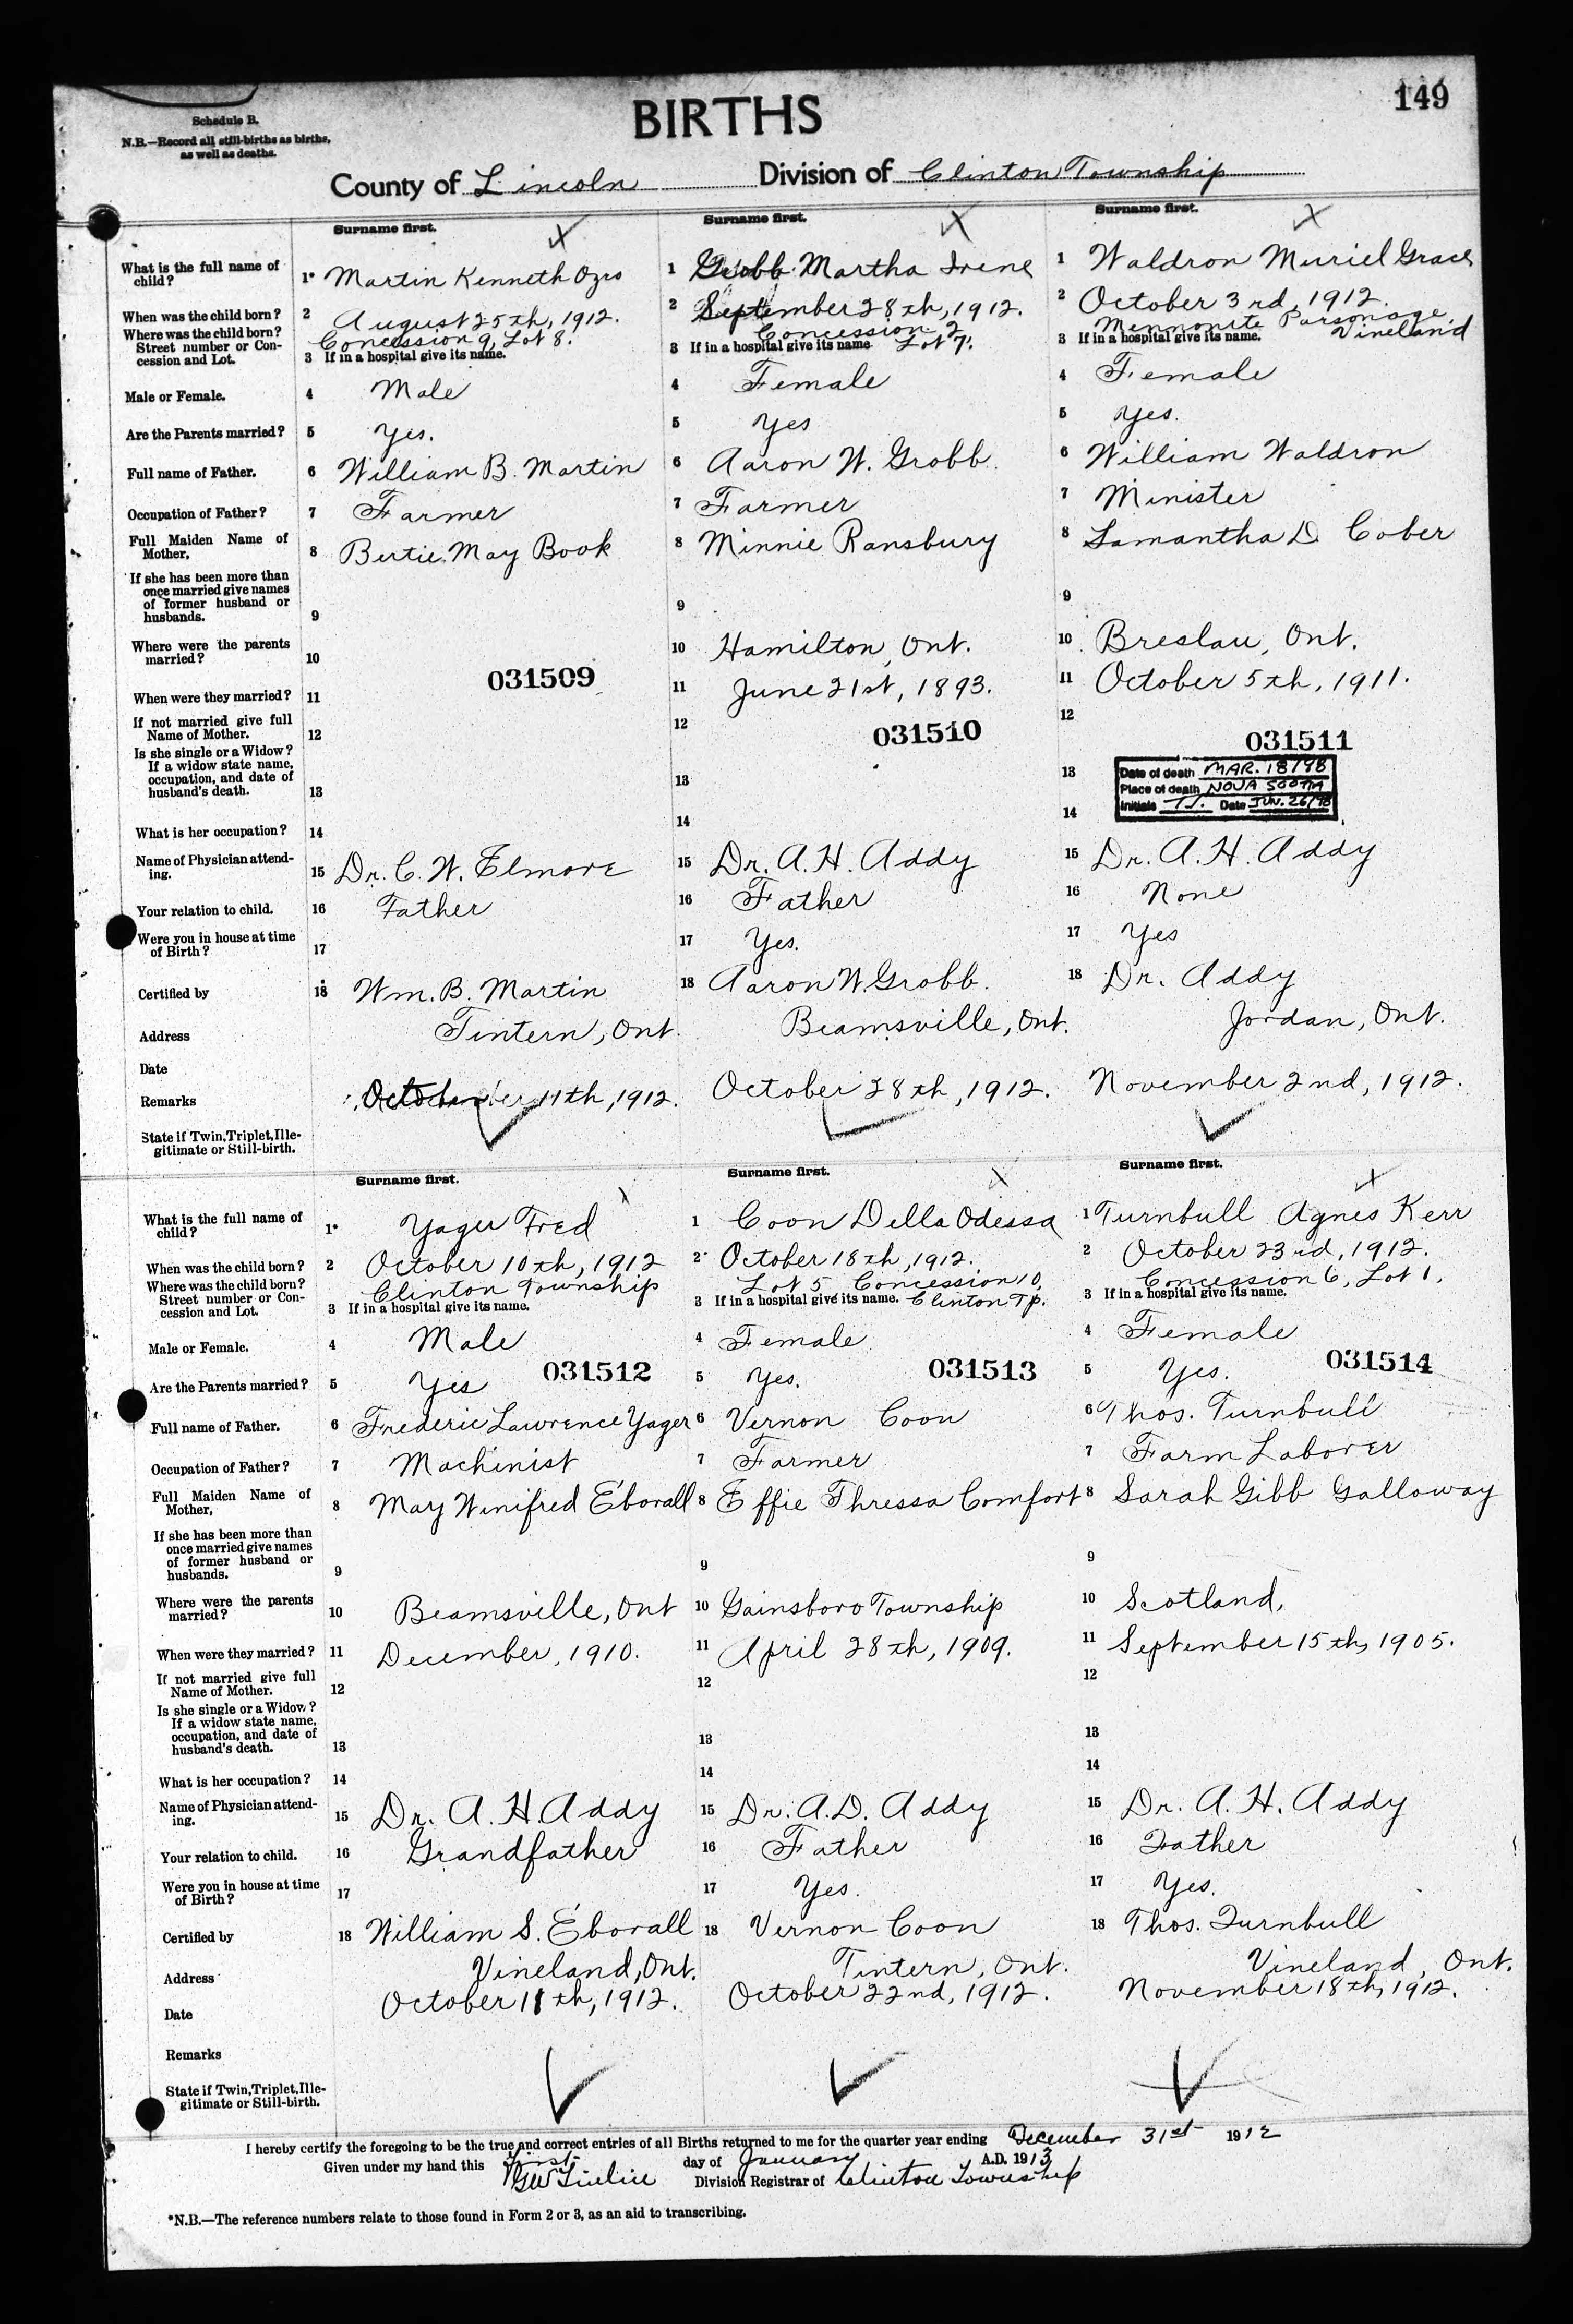 149
Schedule B.
N.B.—Record all still-births as births,
as well as deaths.
BIRTHS
County of Lincoln Division of Clinton Township
Surname first. Surname first. Surname first.
What is the full name of child? 1* Martin Kenneth 1 Grobb Martha Irene 1 Waldron Muriel Grace
When was the child born? 2 August 25th, 1912. 2 September 28th, 1912. 2 October 3rd, 1912.
Where was the child born? Street number or Concession and Lot. Concession 9, Lot 8. Concession 2 Lot 7. Mennonite Parsonage Vineland
3 If in a hospital give its name. 3 If in a hospital give its name. 3 If in a hospital give its name.
Male or Female. 4 Male 4 Female 4 Female
Are the Parents married? 5 Yes. 5 Yes 5 Yes.
Full name of Father. 6 William B. Martin 6 Aaron W. Grobb. 6 William Waldron
Occupation of Father? 7 Farmer 7 Farmer 7 Minister
Full Maiden Name of Mother, 8 Bertie May Book 8 Minnie Ransbury 8 Samantha D. Cober
If she has been more than once married give names of former husband or husbands. 9 9 9
Where were the parents married? 10 10 Hamilton, Ont. 10 Breslau, Ont.
031509
When were they married? 11 11 June 21st, 1893. 11 October 5th, 1911.
If not married give full Name of Mother. 12 12 12
031510 031511
Is she single or a Widow? If a widow state name, occupation, and date of husband's death. 13 13 13
Date of death MAR. 18/98
Place of death NOVA SCOTIA
Initials T.J. Date JUN. 26/98
What is her occupation? 14 14 14
Name of Physician attending. 15 Dr. C. W. Elmore 15 Dr. A. H. Addy 15 Dr. A. H. Addy
Your relation to child. 16 Father 16 Father 16 None
Were you in house at time of Birth? 17 17 Yes. 17 Yes
Certified by 18 Wm. B. Martin 18 Aaron W. Grobb. 18 Dr. Addy
Address Tintern, Ont. Beamsville, Ont. Jordan, Ont.
Date
Remarks October 11th, 1912. October 28th, 1912. November 2nd, 1912.
State if Twin, Triplet, Illegitimate or Still-birth.
Surname first. Surname first. Surname first.
What is the full name of child? 1* Yager Fred 1 Coon Della Odessa 1 Turnbull Agnes Kerr
When was the child born? 2 October 10th, 1912 2 October 18th, 1912. 2 October 23rd, 1912.
Where was the child born? Street number or Concession and Lot. Clinton Township Lot 5 Concession 10, Clinton Tp. Concession 6, Lot 1.
3 If in a hospital give its name. 3 If in a hospital give its name. 3 If in a hospital give its name.
Male or Female. 4 Male 4 Female 4 Female
031512 031513 031514
Are the Parents married? 5 Yes 5 Yes. 5 Yes.
Full name of Father. 6 Frederic Lawrence Yager 6 Vernon Coon 6 Thos. Turnbull
Occupation of Father? 7 Machinist 7 Farmer 7 Farm Laborer
Full Maiden Name of Mother, 8 May Winifred Eborall 8 Effie Thressa Comfort 8 Sarah Gibb Galloway
If she has been more than once married give names of former husband or husbands. 9 9 9
Where were the parents married? 10 Beamsville, Ont 10 Gainsboro Township 10 Scotland,
When were they married? 11 December, 1910. 11 April 28th, 1909. 11 September 15th, 1905.
If not married give full Name of Mother. 12 12 12
Is she single or a Widow? If a widow state name, occupation, and date of husband's death. 13 13 13
What is her occupation? 14 14 14
Name of Physician attending. 15 Dr. A. H. Addy 15 Dr. A. D. Addy 15 Dr. A. H. Addy
Your relation to child. 16 Grandfather 16 Father 16 Father
Were you in house at time of Birth? 17 17 Yes. 17 Yes.
Certified by 18 William S. Eborall 18 Vernon Coon 18 Thos. Turnbull
Address Vineland, Ont. Tintern, Ont. Vineland, Ont.
Date October 11th, 1912. October 22nd, 1912. November 18th, 1912.
Remarks
State if Twin, Triplet, Illegitimate or Still-birth.
I hereby certify the foregoing to be the true and correct entries of all Births returned to me for the quarter year ending December 31st 1912
Given under my hand this first day of January A.D. 1913
Division Registrar of Clinton Township
*N.B.—The reference numbers relate to those found in Form 2 or 3, as an aid to transcribing.